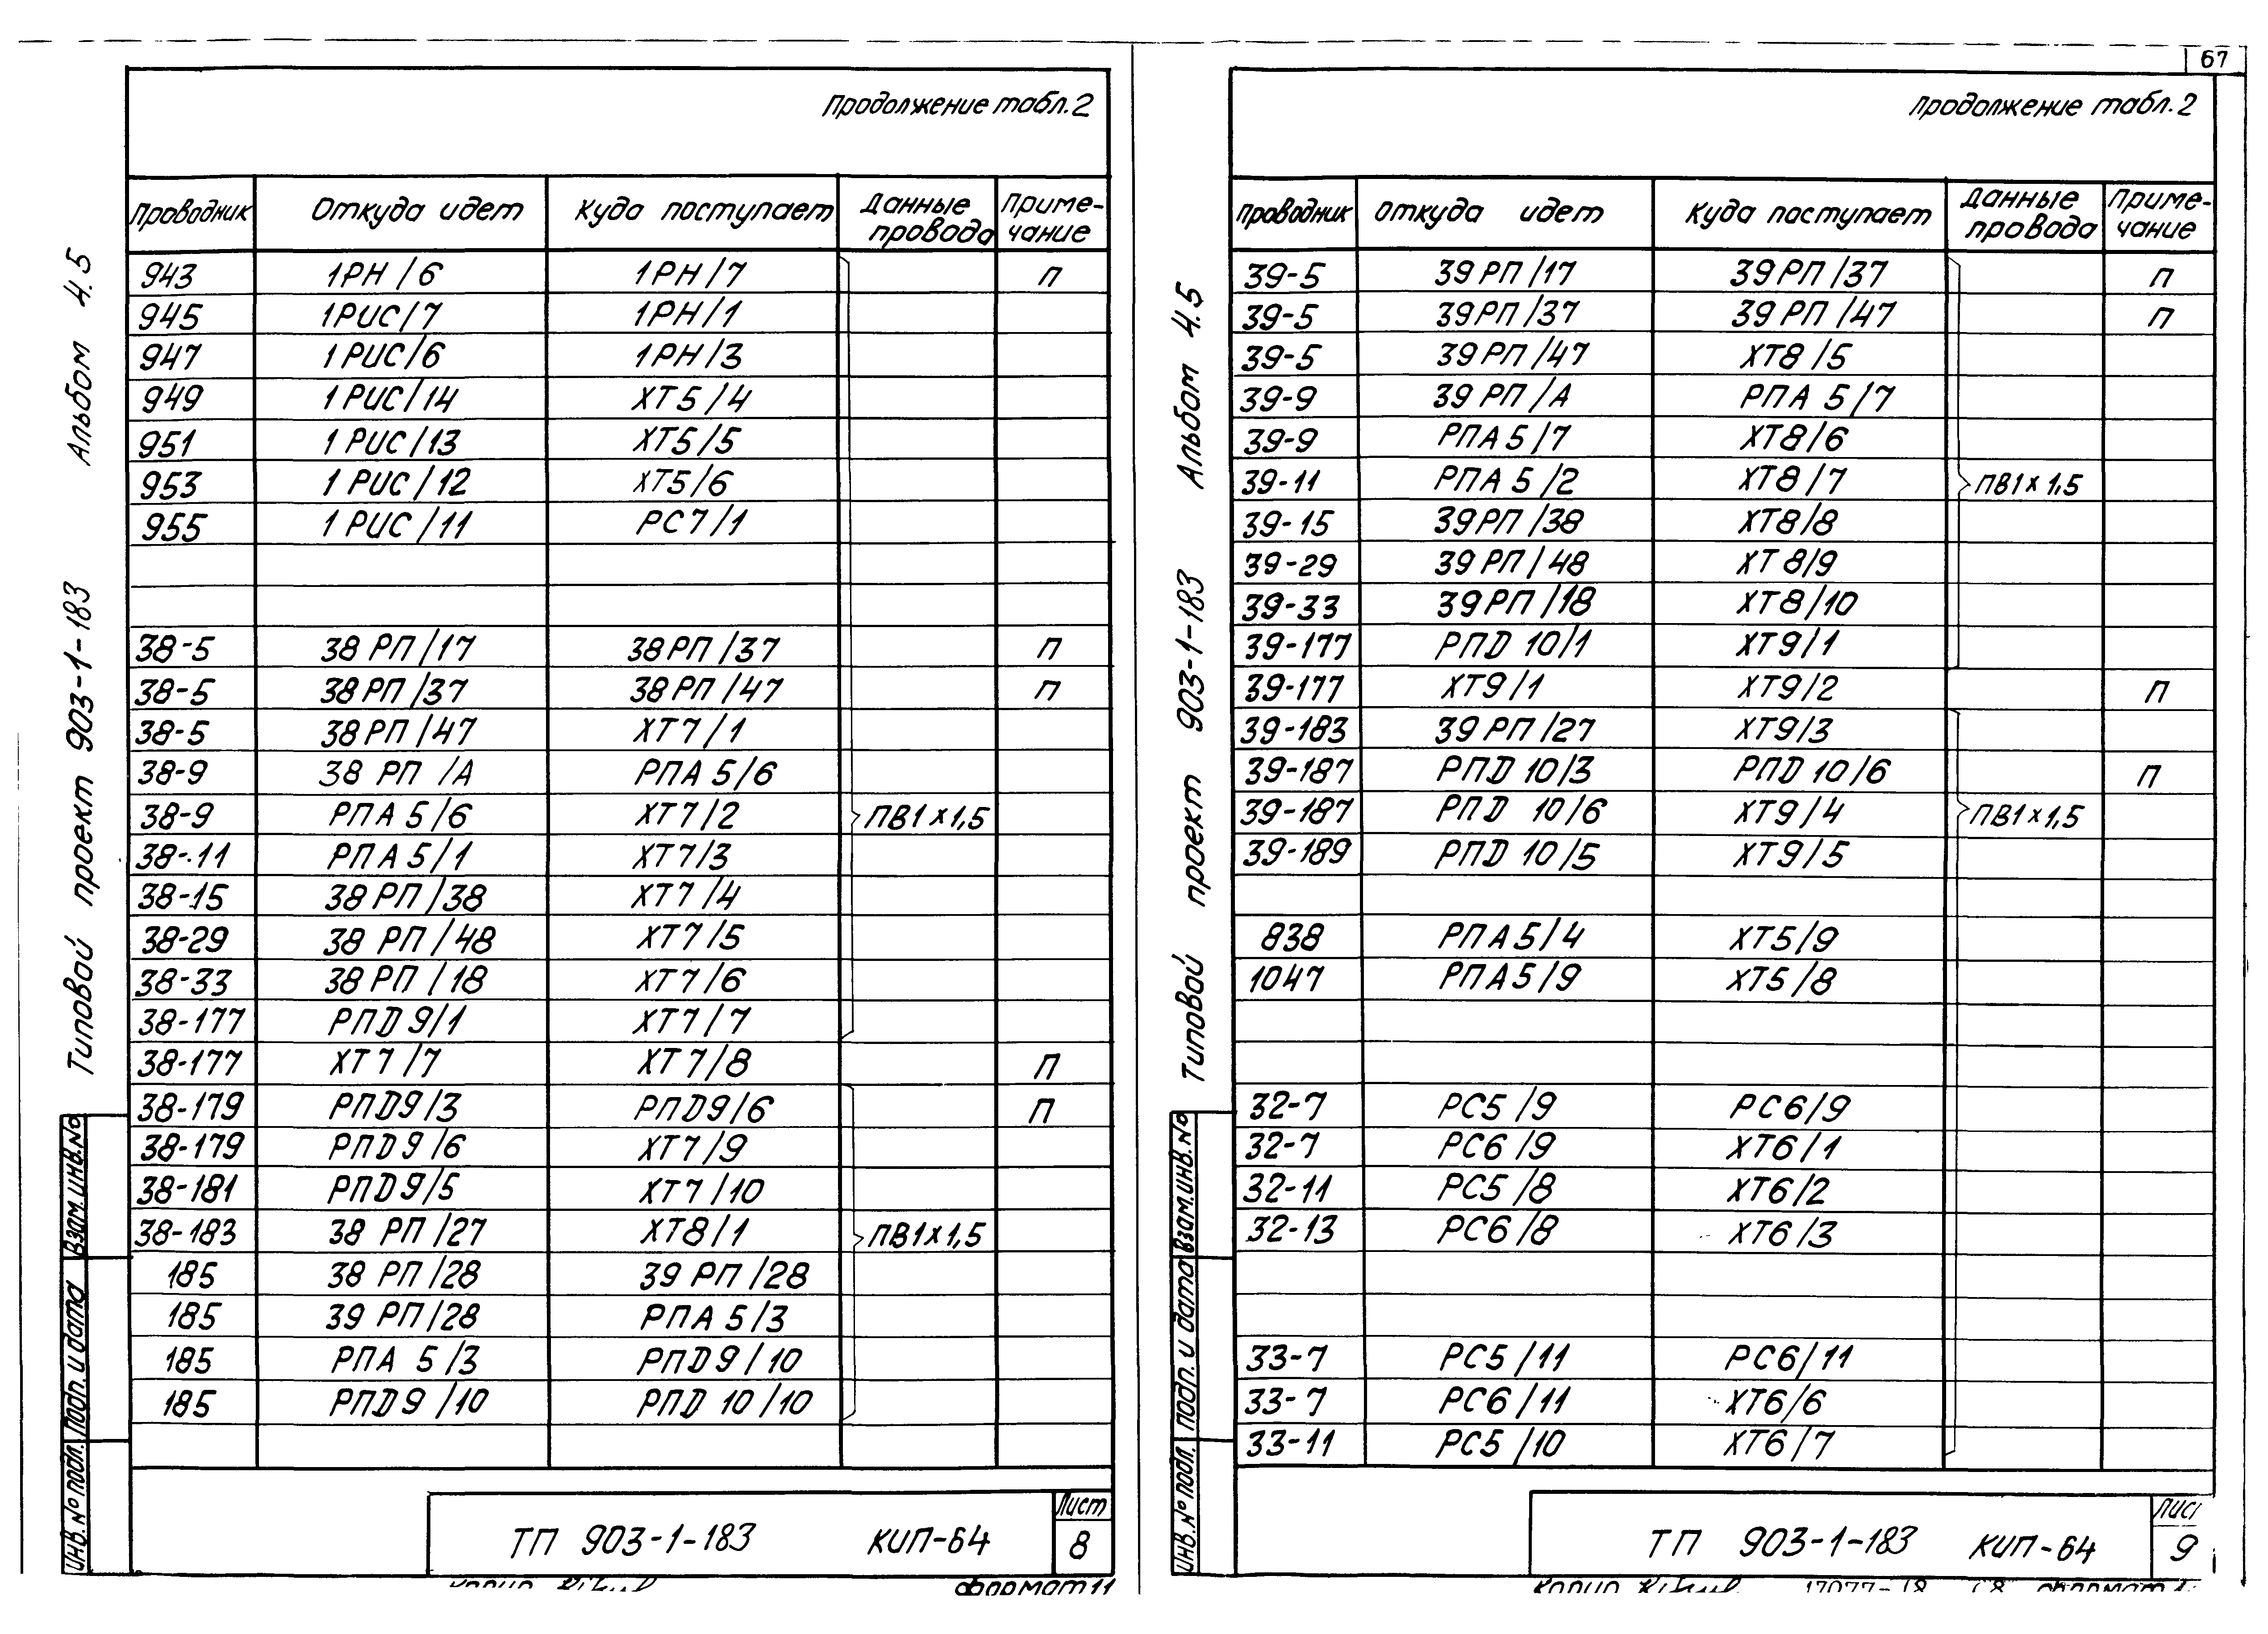 67
Продолжение табл.2
Проводник Откуда идет Куда поступает Данные провода Приме-чание
943 1РН/6 1РН/7 П
945 1РИС/7 1РН/1
947 1РИС/6 1РН/3
949 1РИС/14 ХТ5/4
951 1РИС/13 ХТ5/5
953 1РИС/12 ХТ5/6
955 1РИС/11 РС7/1
38-5 38РП/17 38РП/37 П
38-5 38РП/37 38РП/47 П
38-5 38РП/47 ХТ7/1
38-9 38РП/А РПА5/6
38-9 РПА5/6 ХТ7/2 ПВ1х1,5
38-11 РПА5/1 ХТ7/3
38-15 38РП/38 ХТ7/4
38-29 38РП/48 ХТ7/5
38-33 38РП/18 ХТ7/6
38-177 РПD9/1 ХТ7/7
38-177 ХТ7/7 ХТ7/8 П
38-179 РПD9/3 РПD9/6 П
38-179 РПD9/6 ХТ7/9
38-181 РПD9/5 ХТ7/10
38-183 38РП/27 ХТ8/1 ПВ1х1,5
185 38РП/28 39РП/28
185 39РП/28 РПА5/3
185 РПА5/3 РПD9/10
185 РПD9/10 РПD10/10
Типовой проект 903-1-183 Альбом 4.5
Инв.№ подл. Подп. и дата Взам.инв.№
ТП 903-1-183 КИП-64
Лист
8
формат 11
Продолжение табл.2
Проводник Откуда идет Куда поступает Данные провода Приме-чание
39-5 39РП/17 39РП/37 П
39-5 39РП/37 39РП/47 П
39-5 39РП/47 ХТ8/5
39-9 39РП/А РПА5/7
39-9 РПА5/7 ХТ8/6
39-11 РПА5/2 ХТ8/7 ПВ1х1,5
39-15 39РП/38 ХТ8/8
39-29 39РП/48 ХТ8/9
39-33 39РП/18 ХТ8/10
39-177 РПD10/1 ХТ9/1
39-177 ХТ9/1 ХТ9/2 П
39-183 39РП/27 ХТ9/3
39-187 РПD10/3 РПD10/6 П
39-187 РПD10/6 ХТ9/4 ПВ1х1,5
39-189 РПD10/5 ХТ9/5
838 РПА5/4 ХТ5/9
1047 РПА5/9 ХТ5/8
32-7 РС5/9 РС6/9
32-7 РС6/9 ХТ6/1
32-11 РС5/8 ХТ6/2
32-13 РС6/8 ХТ6/3
33-7 РС5/11 РС6/11
33-7 РС6/11 ХТ6/6
33-11 РС5/10 ХТ6/7
Типовой проект 903-1-183 Альбом 4.5
Инв.№ подл. Подп. и дата Взам.инв.№
ТП 903-1-183 КИП-64
Лист
9